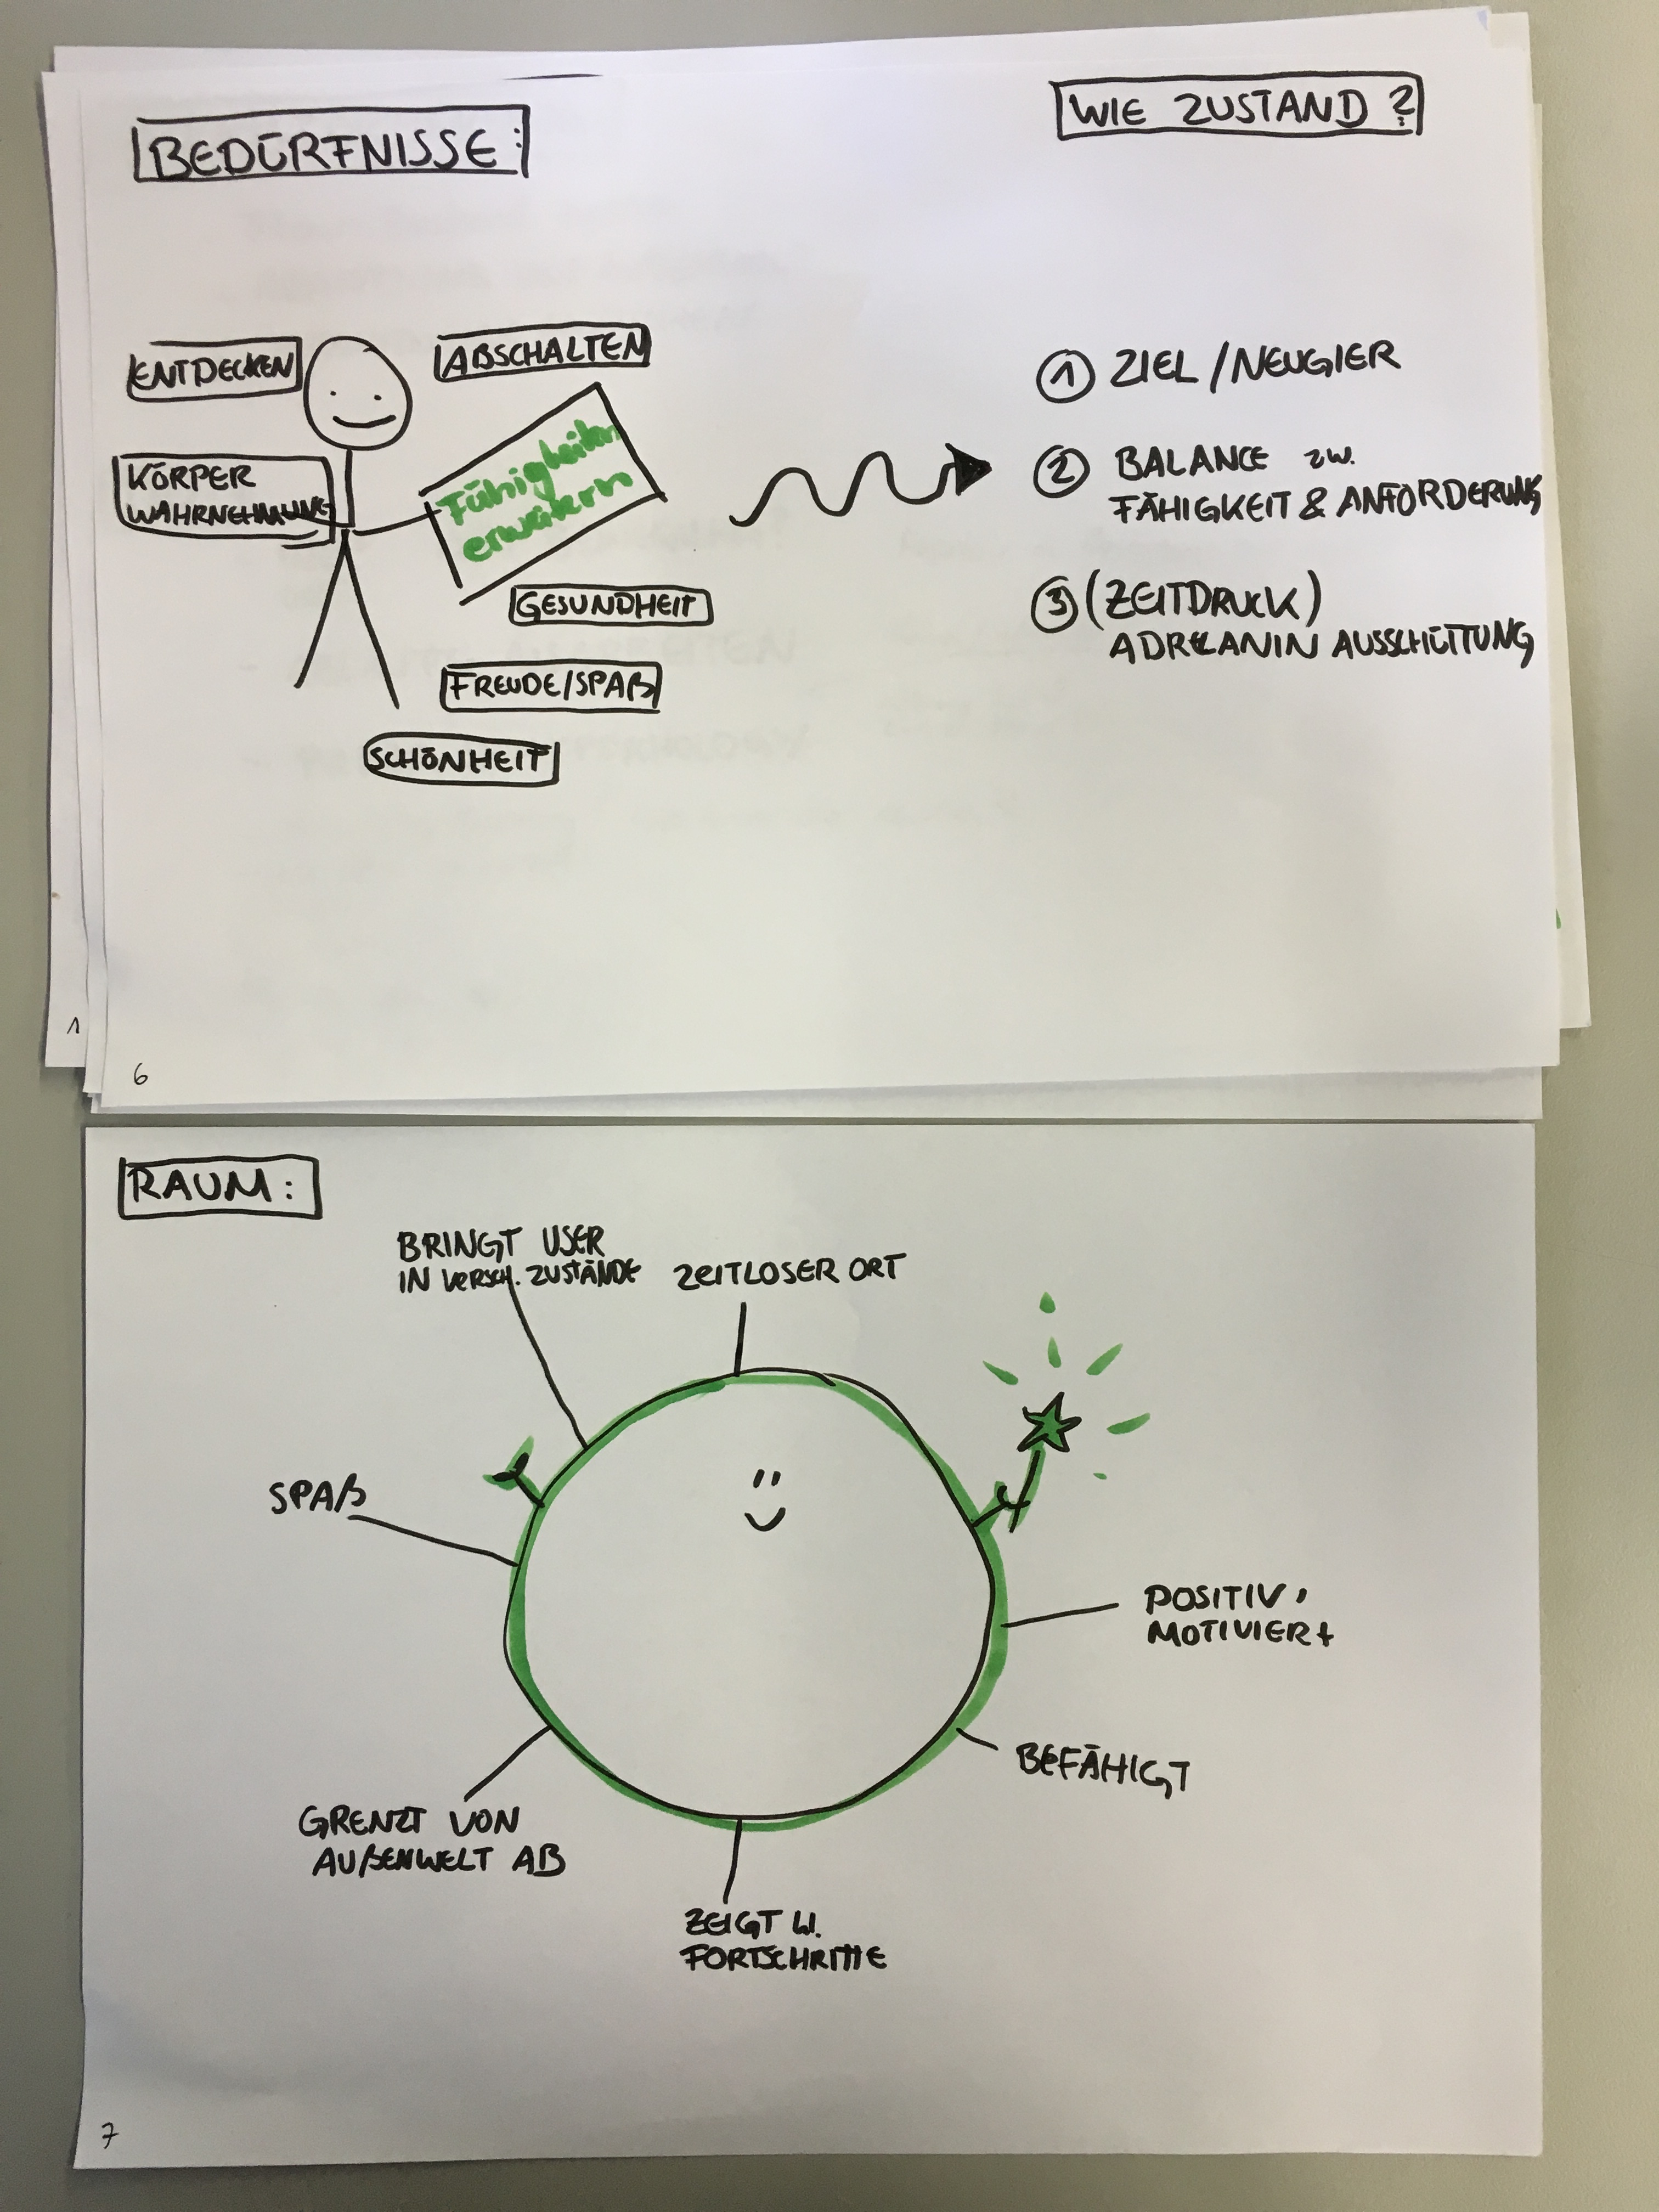 BEDÜRFNISSE:
WIE ZUSTAND?
ENTDECKEN
ABSCHALTEN
KÖRPER
WAHRNEHMUNG
Fähigkeiten
erweitern
GESUNDHEIT
FREUDE/SPAß
SCHÖNHEIT
1 ZIEL/NEUGIER
2 BALANCE ZW.
FÄHIGKEIT & ANFORDERUNG
3 (ZEITDRUCK)
ADRELANIN AUSSCHÜTTUNG
1
6
RAUM:
BRINGT USER
IN VERSCH. ZUSTÄNDE
ZEITLOSER ORT
SPAß
POSITIV,
MOTIVIERt
BEFÄHIGT
GRENZT VON
AUßENWELT AB
ZEIGT W.
FORTSCHRITTE
7